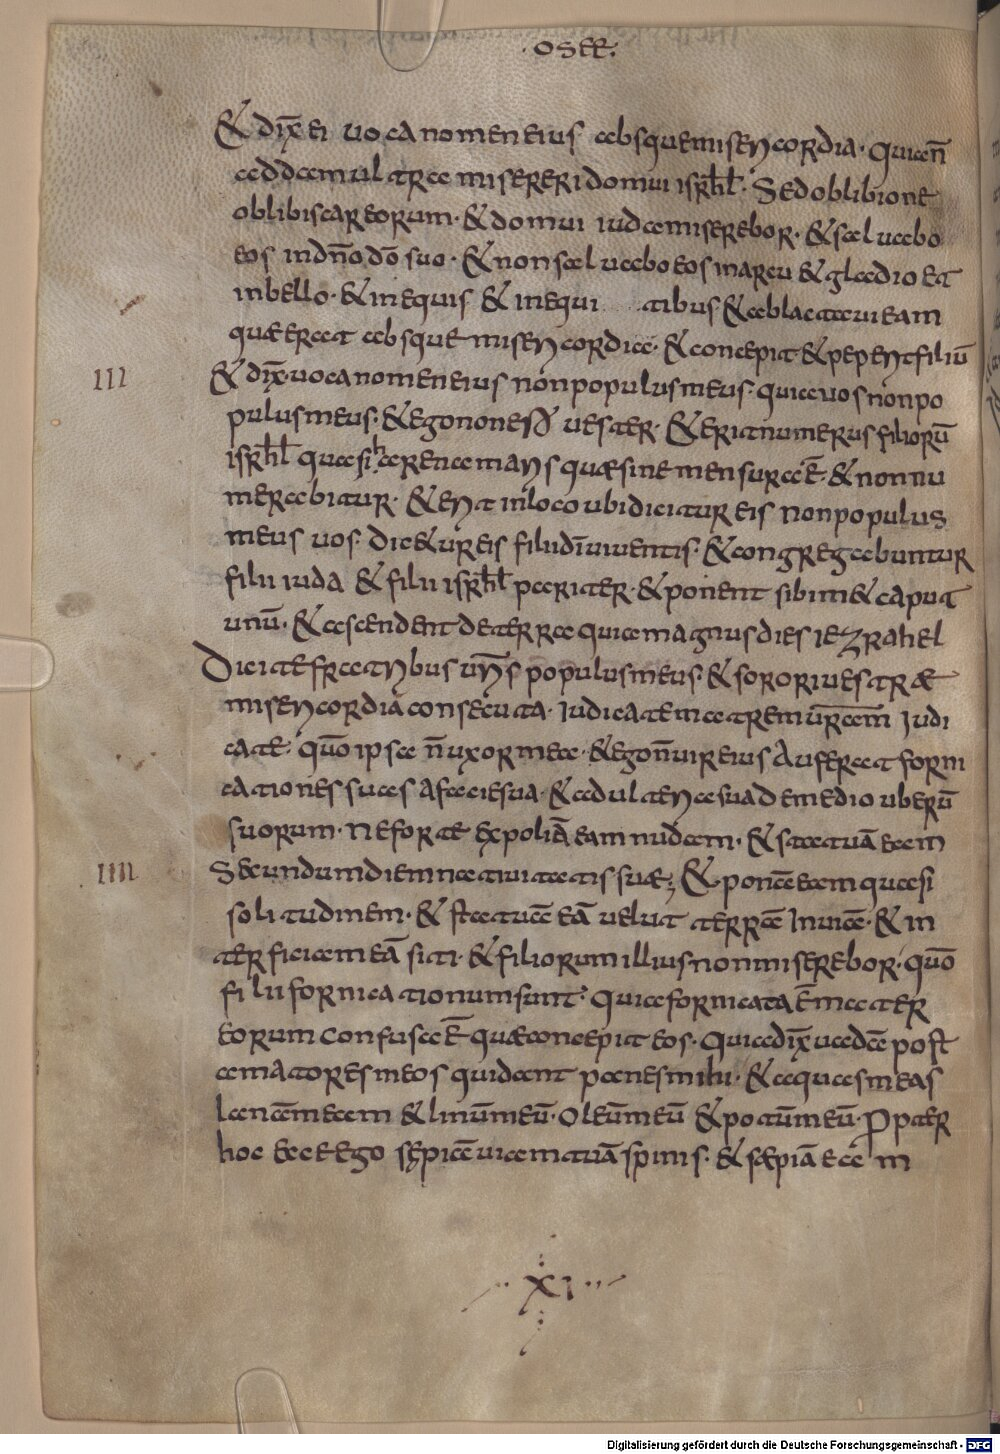 · OSEE ·
& dix̄ ei voca nomen eius absque misericordia · quia n̄
addam ultra misereri domui isrl̄ · Sed oblibione
oblibiscar eorum · & domui iuda miserebor · & salvabo
eos in dn̄o dō suo · & non salvabo eos in arcu & gladio et
in bello · & in equis & in equi tibus & ablactavi eam
quae erat absque misericordia · & concepit & peperit filiū
III & dix̄ · voca nomen eius non populus meus · quia vos non po
pulus meus · & ego non ero vester · & erit numerus filiorū
isrl̄ quasi harena maris quae sine mensura ē · & non nu
merabitur · & erit in loco ubi dicitur eis non populus
meus vos · dicetur eis filii dī viventis · & congregabuntur
filii iuda & filii isrl̄ pariter · & ponent sibim& caput
unū · & ascendent de terra quia magnus dies iezrahel
Dicite fratribus vrīs populus meus · & sorori vestrae
misericordiā consecuta · iudicate matrem vr̄am iudi
cate · quō ipsa n̄ uxor mea · & ego n̄ vir eius Auferat forni
cationes suas a facie sua · & adulteria sua de medio uberū
suorum · Ne forte expoliā eam nudam · & statuā eam
IIII Secundum diem nativitatis suae · & ponā eam quasi
solitudinem · & statuā eā velut terrā inviā · & in
terficiam eā siti · & filiorum illius non miserebor · quō
filii fornicationum sunt · quia fornicata ē mater
eorum confusa ē quae concepit eos · Quia dix̄ vadā post
amatores meos qui dant panes mihi · & aquas meas
lanam meam & linū meū · oleū meū & potū meū · Ppter
hoc ecce ego sępiā viam tuā spinis · & saepiā eā m
·· XI ··
Digitalisierung gefördert durch die Deutsche Forschungsgemeinschaft - DFG